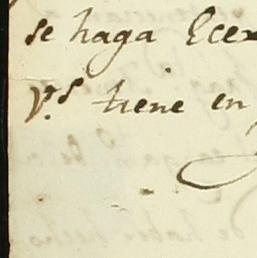 se haga Ecex
V.s tiene en